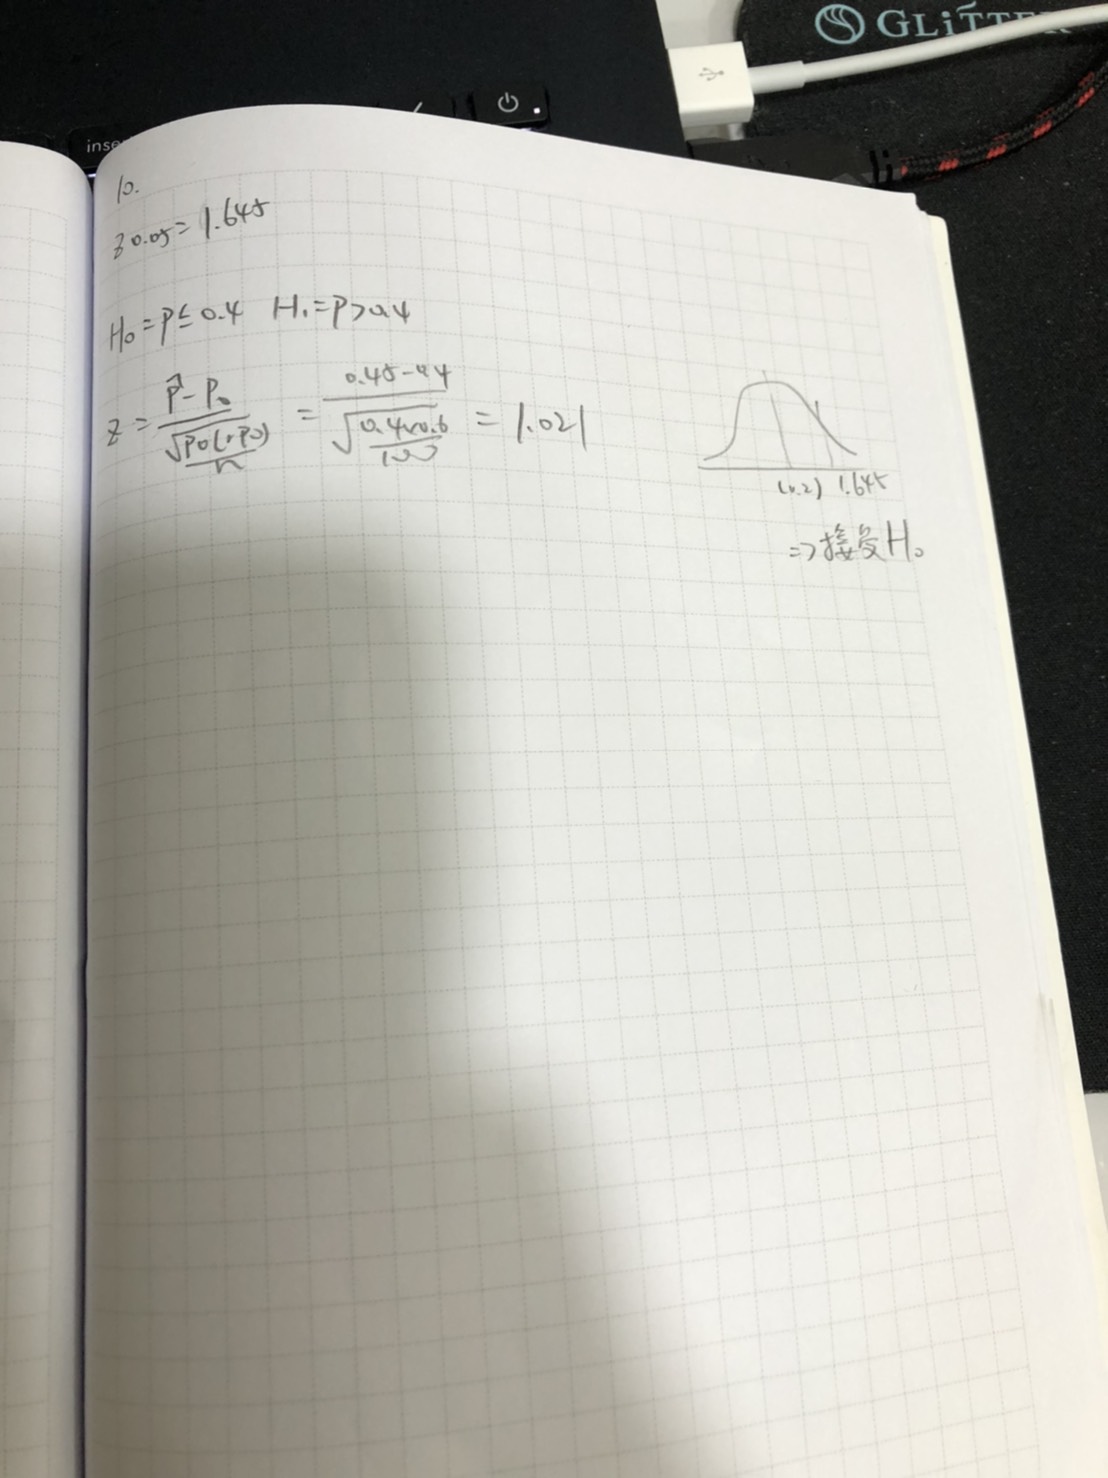 GLiTTER
inse
10.
z0.05 = 1.645
H₀ = P ≤ 0.4 H₁ = P > 0.4
z = (P̂ - P₀) / √(P₀(1-P₀)/n) = (0.45 - 0.4) / √(0.4×0.6/100) = 1.021
1.645
⇒接受H₀